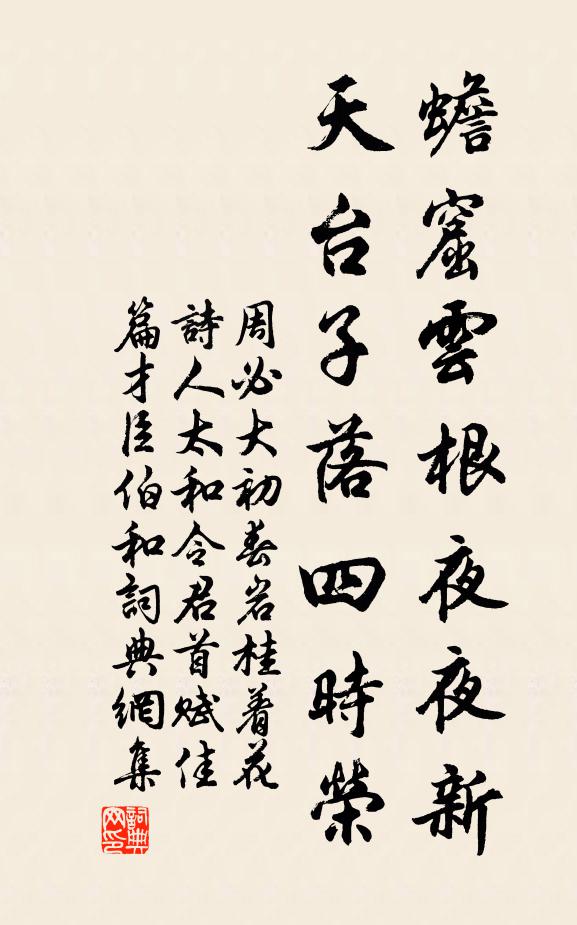 蟾窟雲根夜夜新
天台子落四時榮
周必大初春岩桂着花
詩人太和令君首赋佳
篇才臣伯和詞典網集
詞典网印